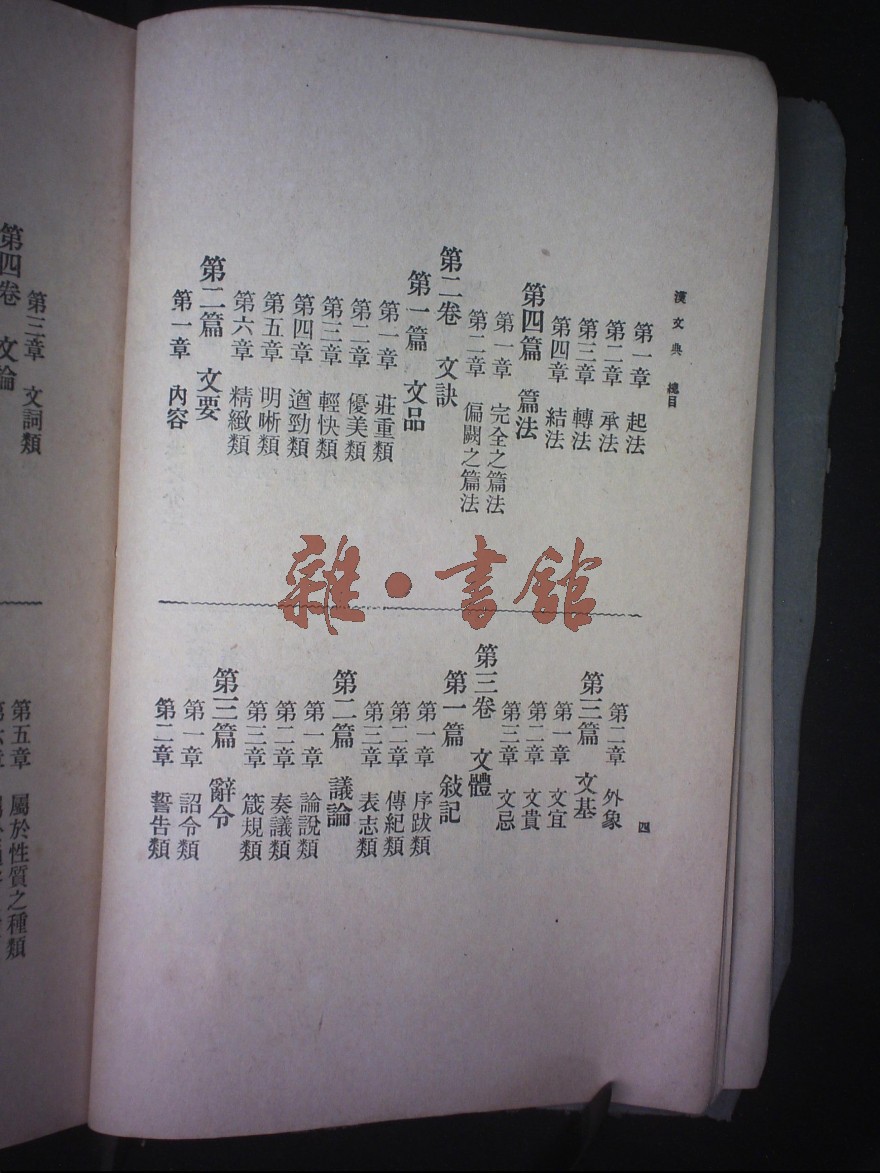 漢文典 總目
第一章 起法
第二章 承法
第三章 轉法
第四章 結法
第四篇 篇法
第一章 完全之篇法
第二章 偏闕之篇法
第二卷 文訣
第一篇 文品
第一章 莊重類
第二章 優美類
第三章 輕快類
第四章 遒勁類
第五章 明晰類
第六章 精緻類
第二篇 文要
第一章 內容
四
第二章 外象
第三篇 文基
第一章 文宜
第二章 文貴
第三章 文忌
第三卷 文體
第一篇 敍記
第一章 序跋類
第二章 傳紀類
第三章 表志類
第二篇 議論
第一章 論說類
第二章 奏議類
第三章 箴規類
第三篇 辭令
第一章 詔令類
第二章 誓告類
雜·書館
第三章 文詞類
第四卷 文論
第五章 屬於性質之種類